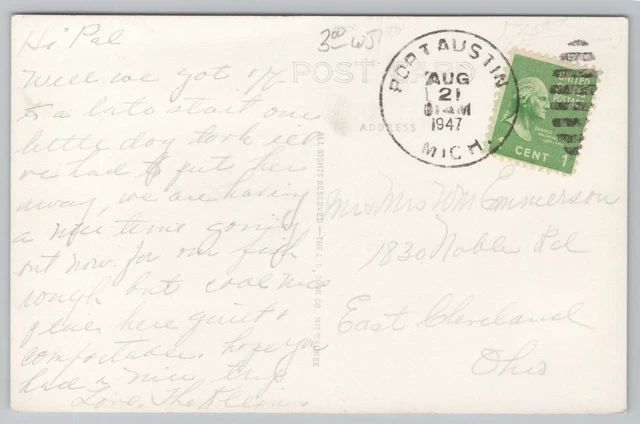 Hi Pal
Well we got off
to a late start one
little dog took ill
we had to put her
away, we are having
a nice time going
out now for our fish
rough but cool nice
place here quiet &
comfortable. hope you
had a nice trip
Love, The Kleins
3⁰⁰ WJ
POST CARD
ADDRESS
PORT AUSTIN
AUG
21
AM
1947
MICH.
UNITED
STATES
POSTAGE
CENT 1
ALL RIGHTS RESERVED—THE L. L. COOK CO. MILWAUKEE
Mr & Mrs Wm Emmerson
1830 Noble Rd
East Cleveland
Ohio